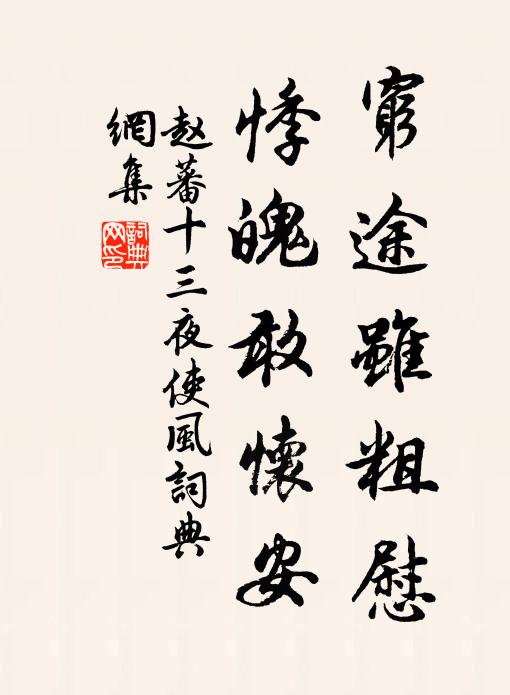 窮途雖粗慰
悸魄敢懷安
赵蕃十三夜使風詞典
網集
詞典
网印